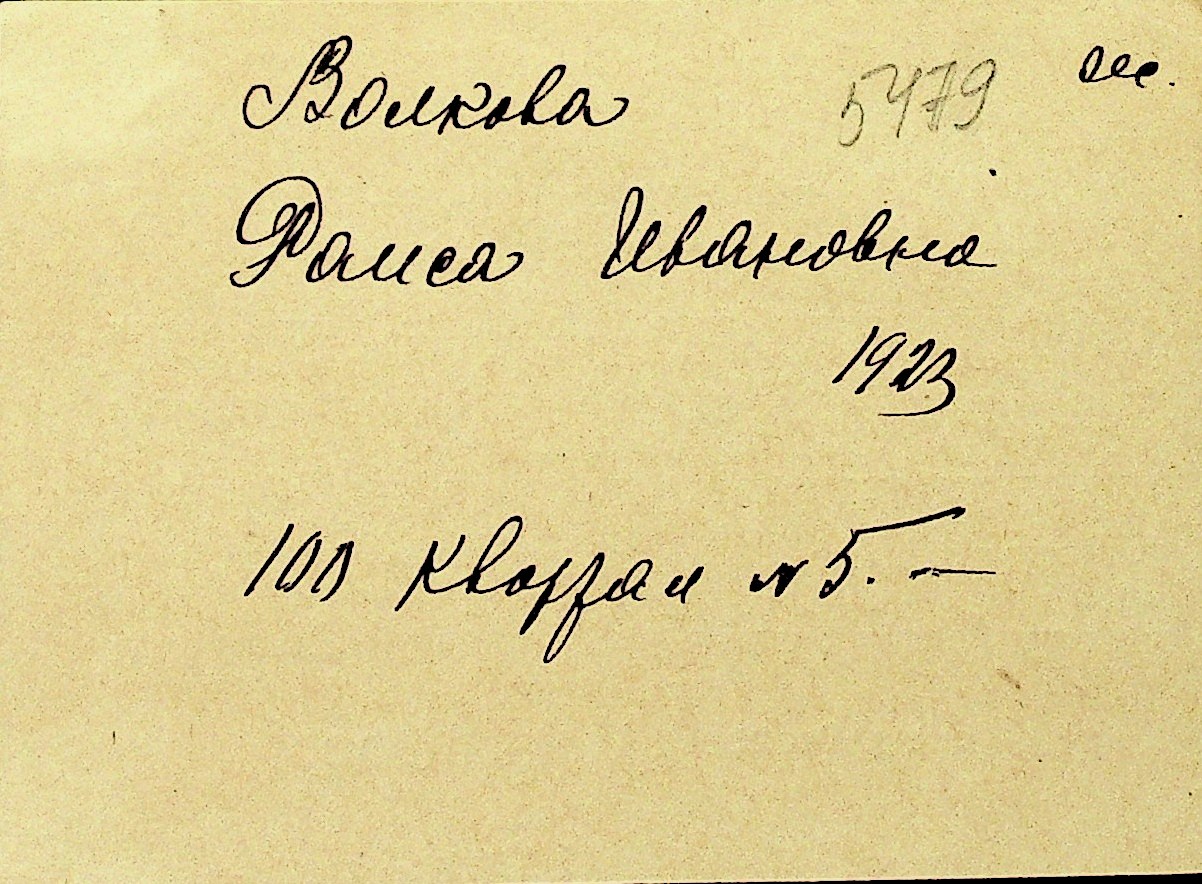 Волкова 5479
Раиса Ивановна
1923
100 квартал № 5. —